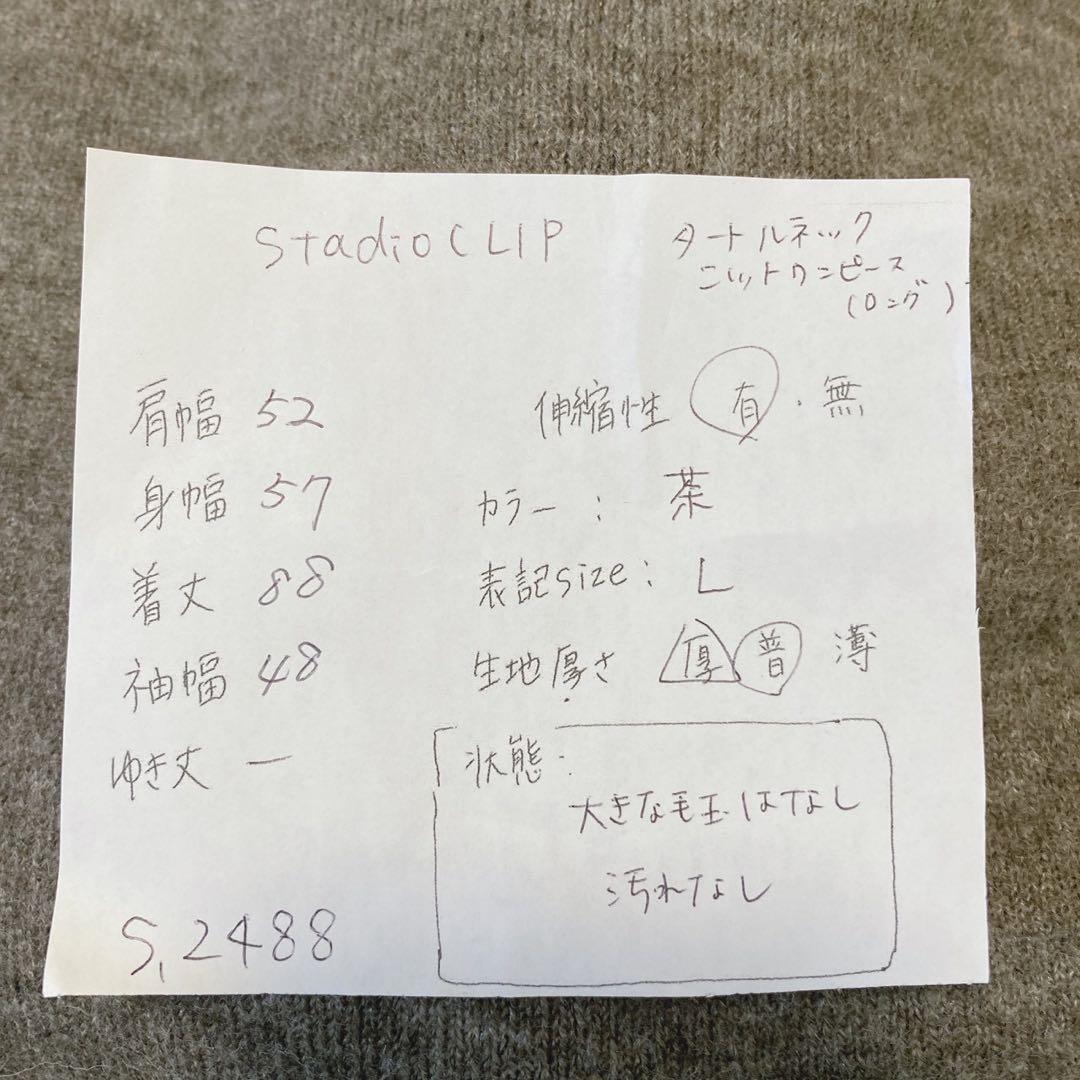 StadioCLIP
タートルネック
ニットワンピース
(ロング)
肩幅 52
身幅 57
着丈 88
袖幅 48
ゆき丈 ー
S,2488
伸縮性 有・無
カラー: 茶
表記size: L
生地厚さ 厚 普 薄
状態:
大きな毛玉はなし
汚れなし